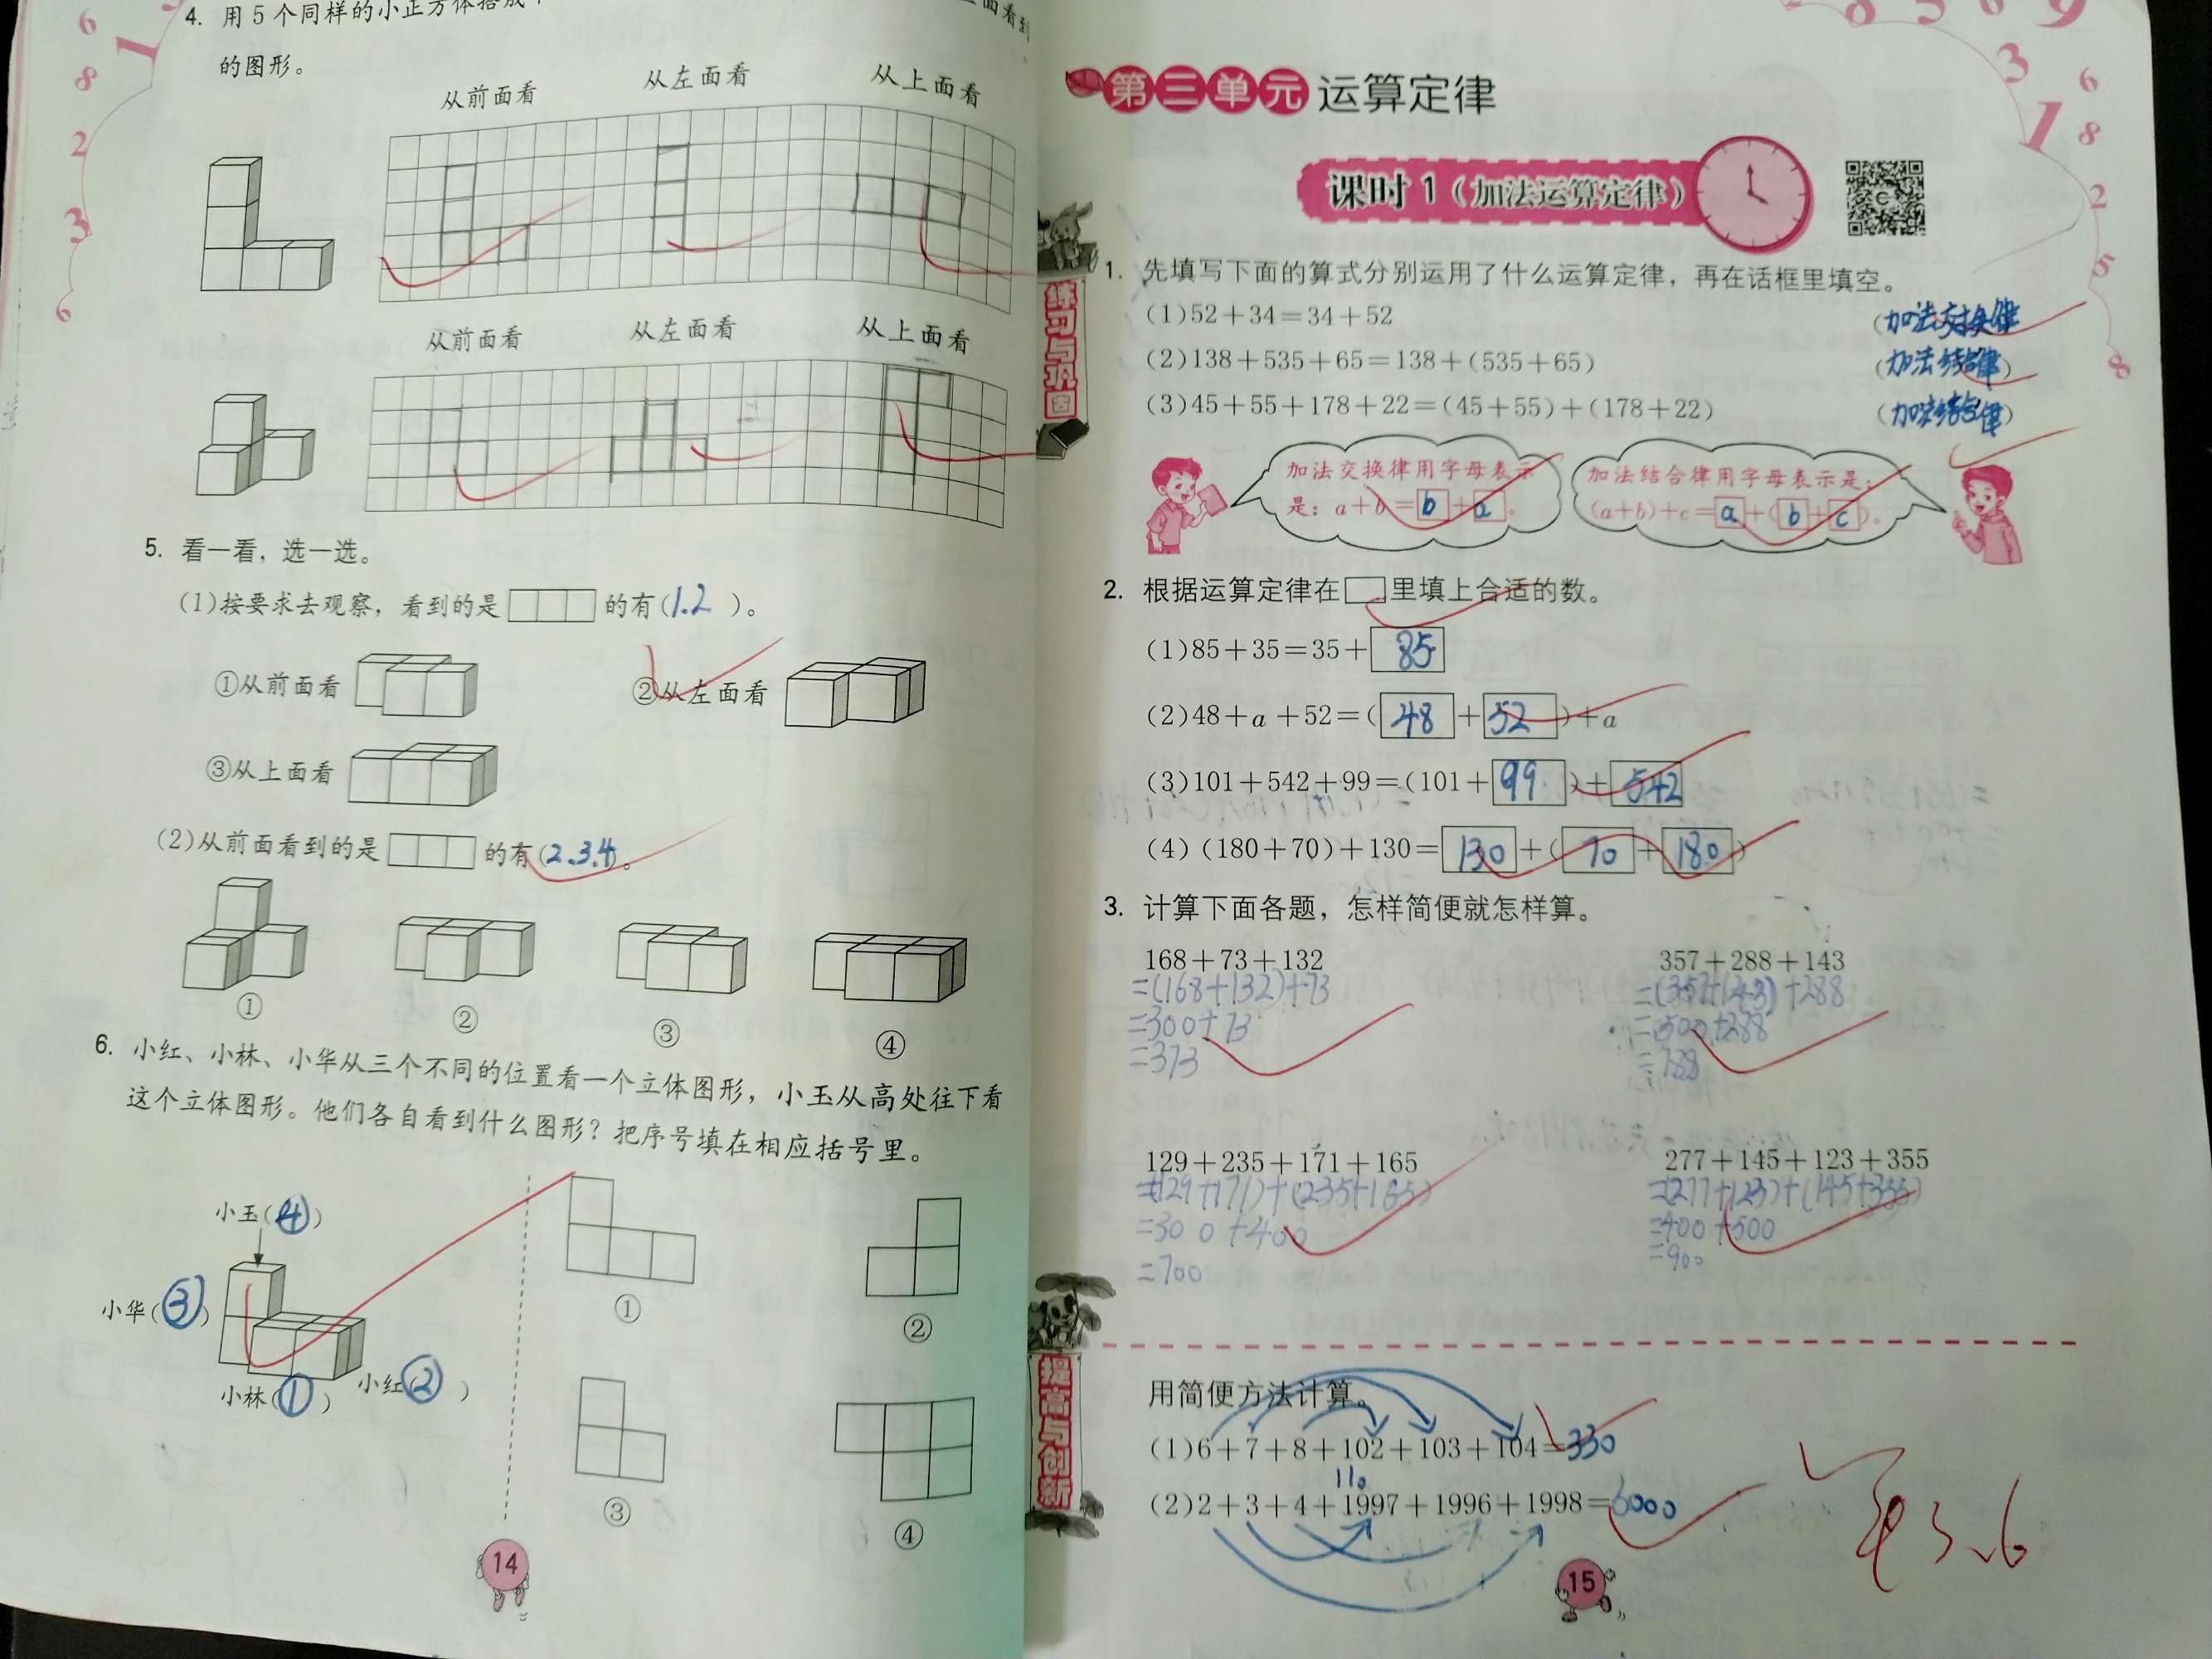 4. 用5个同样的小正方体搭成
面看到
的图形。
从前面看 从左面看 从上面看
从前面看 从左面看 从上面看
5. 看一看，选一选。
(1)按要求去观察，看到的是 的有(1.2)。
①从前面看 ②从左面看
③从上面看
(2)从前面看到的是 的有(2.3.4)。
① ② ③ ④
6. 小红、小林、小华从三个不同的位置看一个立体图形，小玉从高处往下看
这个立体图形。他们各自看到什么图形？把序号填在相应括号里。
小玉(④)
小华(③)
小林(①) 小红(②)
① ②
③ ④
14
第三单元 运算定律
课时1(加法运算定律)
练习与巩固
1. 先填写下面的算式分别运用了什么运算定律，再在话框里填空。
(1)52+34=34+52 (加法交换律)
(2)138+535+65=138+(535+65) (加法结合律)
(3)45+55+178+22=(45+55)+(178+22) (加法结合律)
加法交换律用字母表示
是：a+b=b+a。
加法结合律用字母表示是：
(a+b)+c=a+(b+c)。
2. 根据运算定律在□里填上合适的数。
(1)85+35=35+85
(2)48+a+52=(48+52)+a
(3)101+542+99=(101+99)+542
(4)(180+70)+130=130+(70+180)
3. 计算下面各题，怎样简便就怎样算。
168+73+132
=(168+132)+73
=300+73
=373
357+288+143
=(357+143)+288
=500+288
=788
129+235+171+165
=(129+171)+(235+165)
=300+400
=700
277+145+123+355
=(277+123)+(145+355)
=400+500
=900
提高与创新
用简便方法计算。
(1)6+7+8+102+103+104=330
110
(2)2+3+4+1997+1996+1998=6000
3.6
15